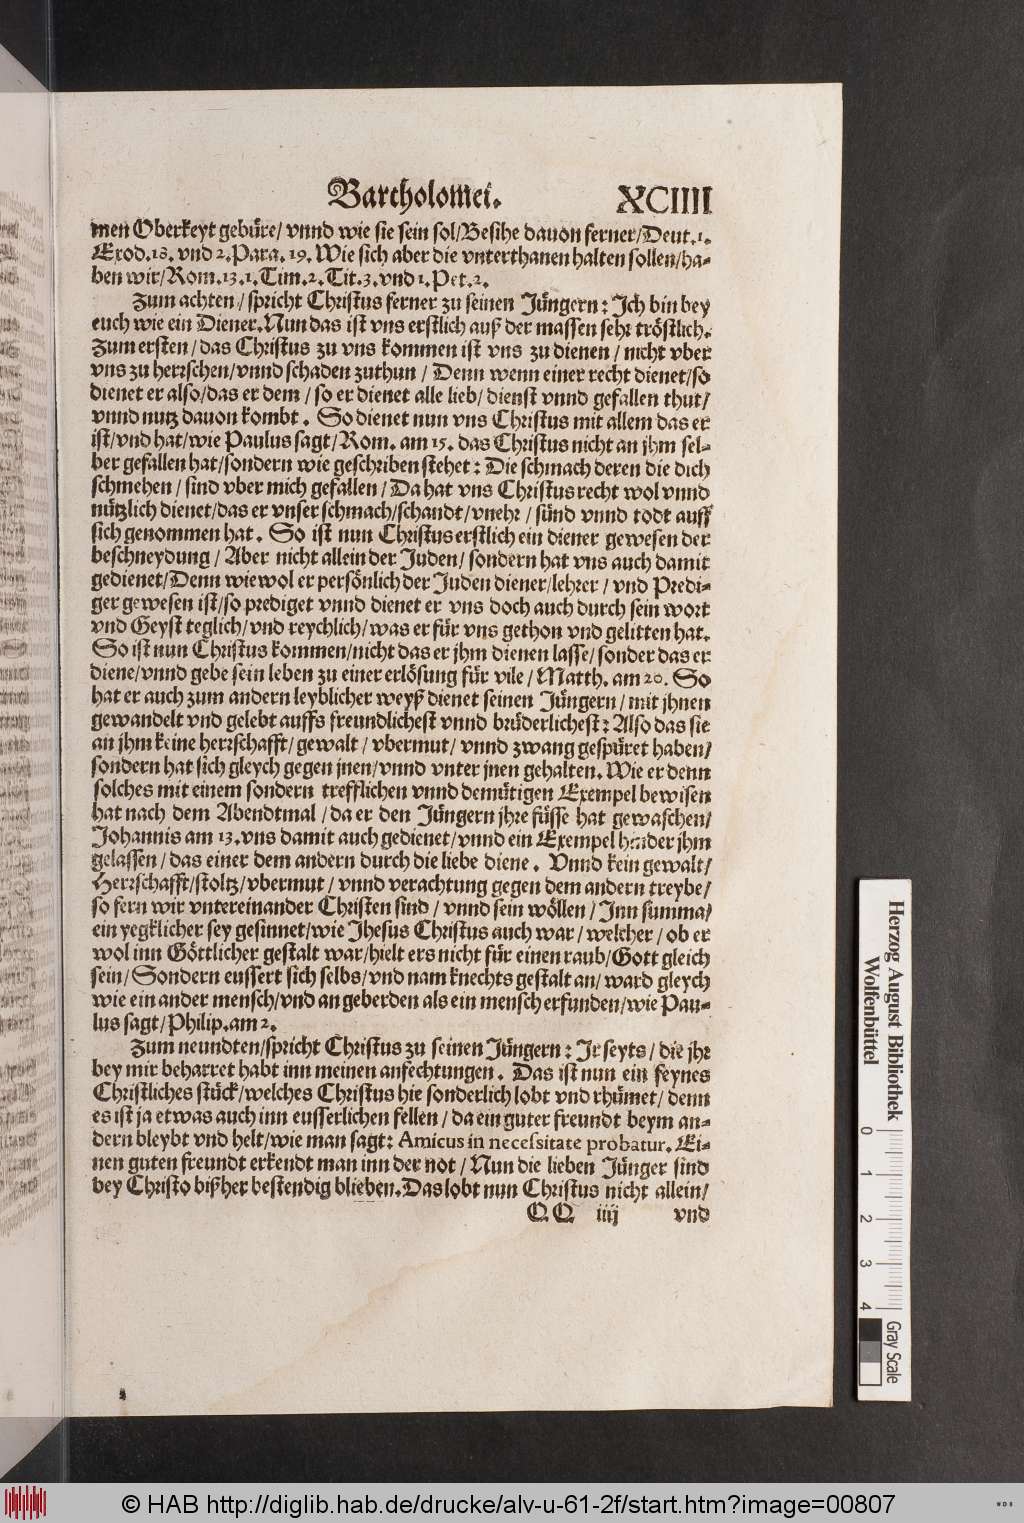 Bartholomei. XCIIII
men Oberkeyt gebüre/ vnnd wie sie sein sol/Besihe dauon ferner/Deut.1.
Exod.18. vnd 2.Para. 19. Wie sich aber die vnterthanen halten sollen/ha-
ben wir/Rom.13.1.Tim.2.Tit.3.vnd 1.Pet.2.
Zum achten/ spricht Christus ferner zu seinen Jüngern: Ich bin bey
euch wie ein Diener. Nun das ist vns erstlich auß der massen sehr tröstlich.
Zum ersten/ das Christus zu vns kommen ist vns zu dienen/ nicht vber
vns zu herrschen/vnnd schaden zuthun/ Denn wenn einer recht dienet/so
dienet er also/das er dem/ so er dienet alle lieb/ dienst vnnd gefallen thut/
vnnd nutz dauon kombt. So dienet nun vns Christus mit allem das er
ist/vnd hat/wie Paulus sagt/Rom. am 15. das Christus nicht an jhm sel-
ber gefallen hat/sondern wie geschriben stehet: Die schmach deren die dich
schmehen/ sind vber mich gefallen/ Da hat vns Christus recht wol vnnd
nützlich dienet/das er vnser schmach/schandt/vnehr/ sünd vnnd todt auff
sich genommen hat. So ist nun Christus erstlich ein diener gewesen der
beschneydung/ Aber nicht allein der Juden/ sondern hat vns auch damit
gedienet/Denn wiewol er persönlich der Juden diener/lehrer/ vnd Predi-
ger gewesen ist/so prediget vnnd dienet er vns doch auch durch sein wort
vnd Geyst teglich/vnd reychlich/was er für vns gethon vnd gelitten hat.
So ist nun Christus kommen/nicht das er jhm dienen lasse/ sonder das er
diene/vnnd gebe sein leben zu einer erlösung für vile/ Matth. am 20. So
hat er auch zum andern leyblicher weyß dienet seinen Jüngern/ mit jhnen
gewandelt vnd gelebt auffs freundlichest vnnd brüderlichest: Also das sie
an jhm keine herrschafft/ gewalt/ vbermut/ vnnd zwang gespüret haben/
sondern hat sich gleych gegen jnen/vnnd vnter jnen gehalten. Wie er denn
solches mit einem sondern trefflichen vnnd demütigen Exempel bewisen
hat nach dem Abendtmal/ da er den Jüngern jhre füsse hat gewaschen/
Johannis am 13. vns damit auch gedienet/vnnd ein Exempel hinder jhm
gelassen/ das einer dem andern durch die liebe diene. Vnnd kein gewalt/
Herrschafft/stoltz/vbermut/ vnnd verachtung gegen dem andern treybe/
so fern wir vntereinander Christen sind/ vnnd sein wöllen/ Inn summa/
ein yegklicher sey gesinnet/wie Jhesus Christus auch war/ welcher/ ob er
wol inn Göttlicher gestalt war/hielt ers nicht für einen raub/Gott gleich
sein/ Sondern eussert sich selbs/vnd nam knechts gestalt an/ ward gleych
wie ein ander mensch/vnd an geberden als ein mensch erfunden/wie Pau-
lus sagt/Philip.am 2.
Zum neundten/spricht Christus zu seinen Jüngern: Ir seyts/ die jhr
bey mir beharret habt inn meinen anfechtungen. Das ist nun ein feynes
Christliches stück/welches Christus hie sonderlich lobt vnd rhümet/ denn
es ist ja etwas auch inn eusserlichen fellen/ da ein guter freundt beym an-
dern bleybt vnd helt/wie man sagt: Amicus in necessitate probatur. Ei-
nen guten freundt erkendt man inn der not/ Nun die lieben Jünger sind
bey Christo bißher bestendig blieben. Das lobt nun Christus nicht allein/
QQ iiij vnd
Herzog August Bibliothek
Wolfenbüttel
0 1 2 3 4
Gray Scale
© HAB http://diglib.hab.de/drucke/alv-u-61-2f/start.htm?image=00807